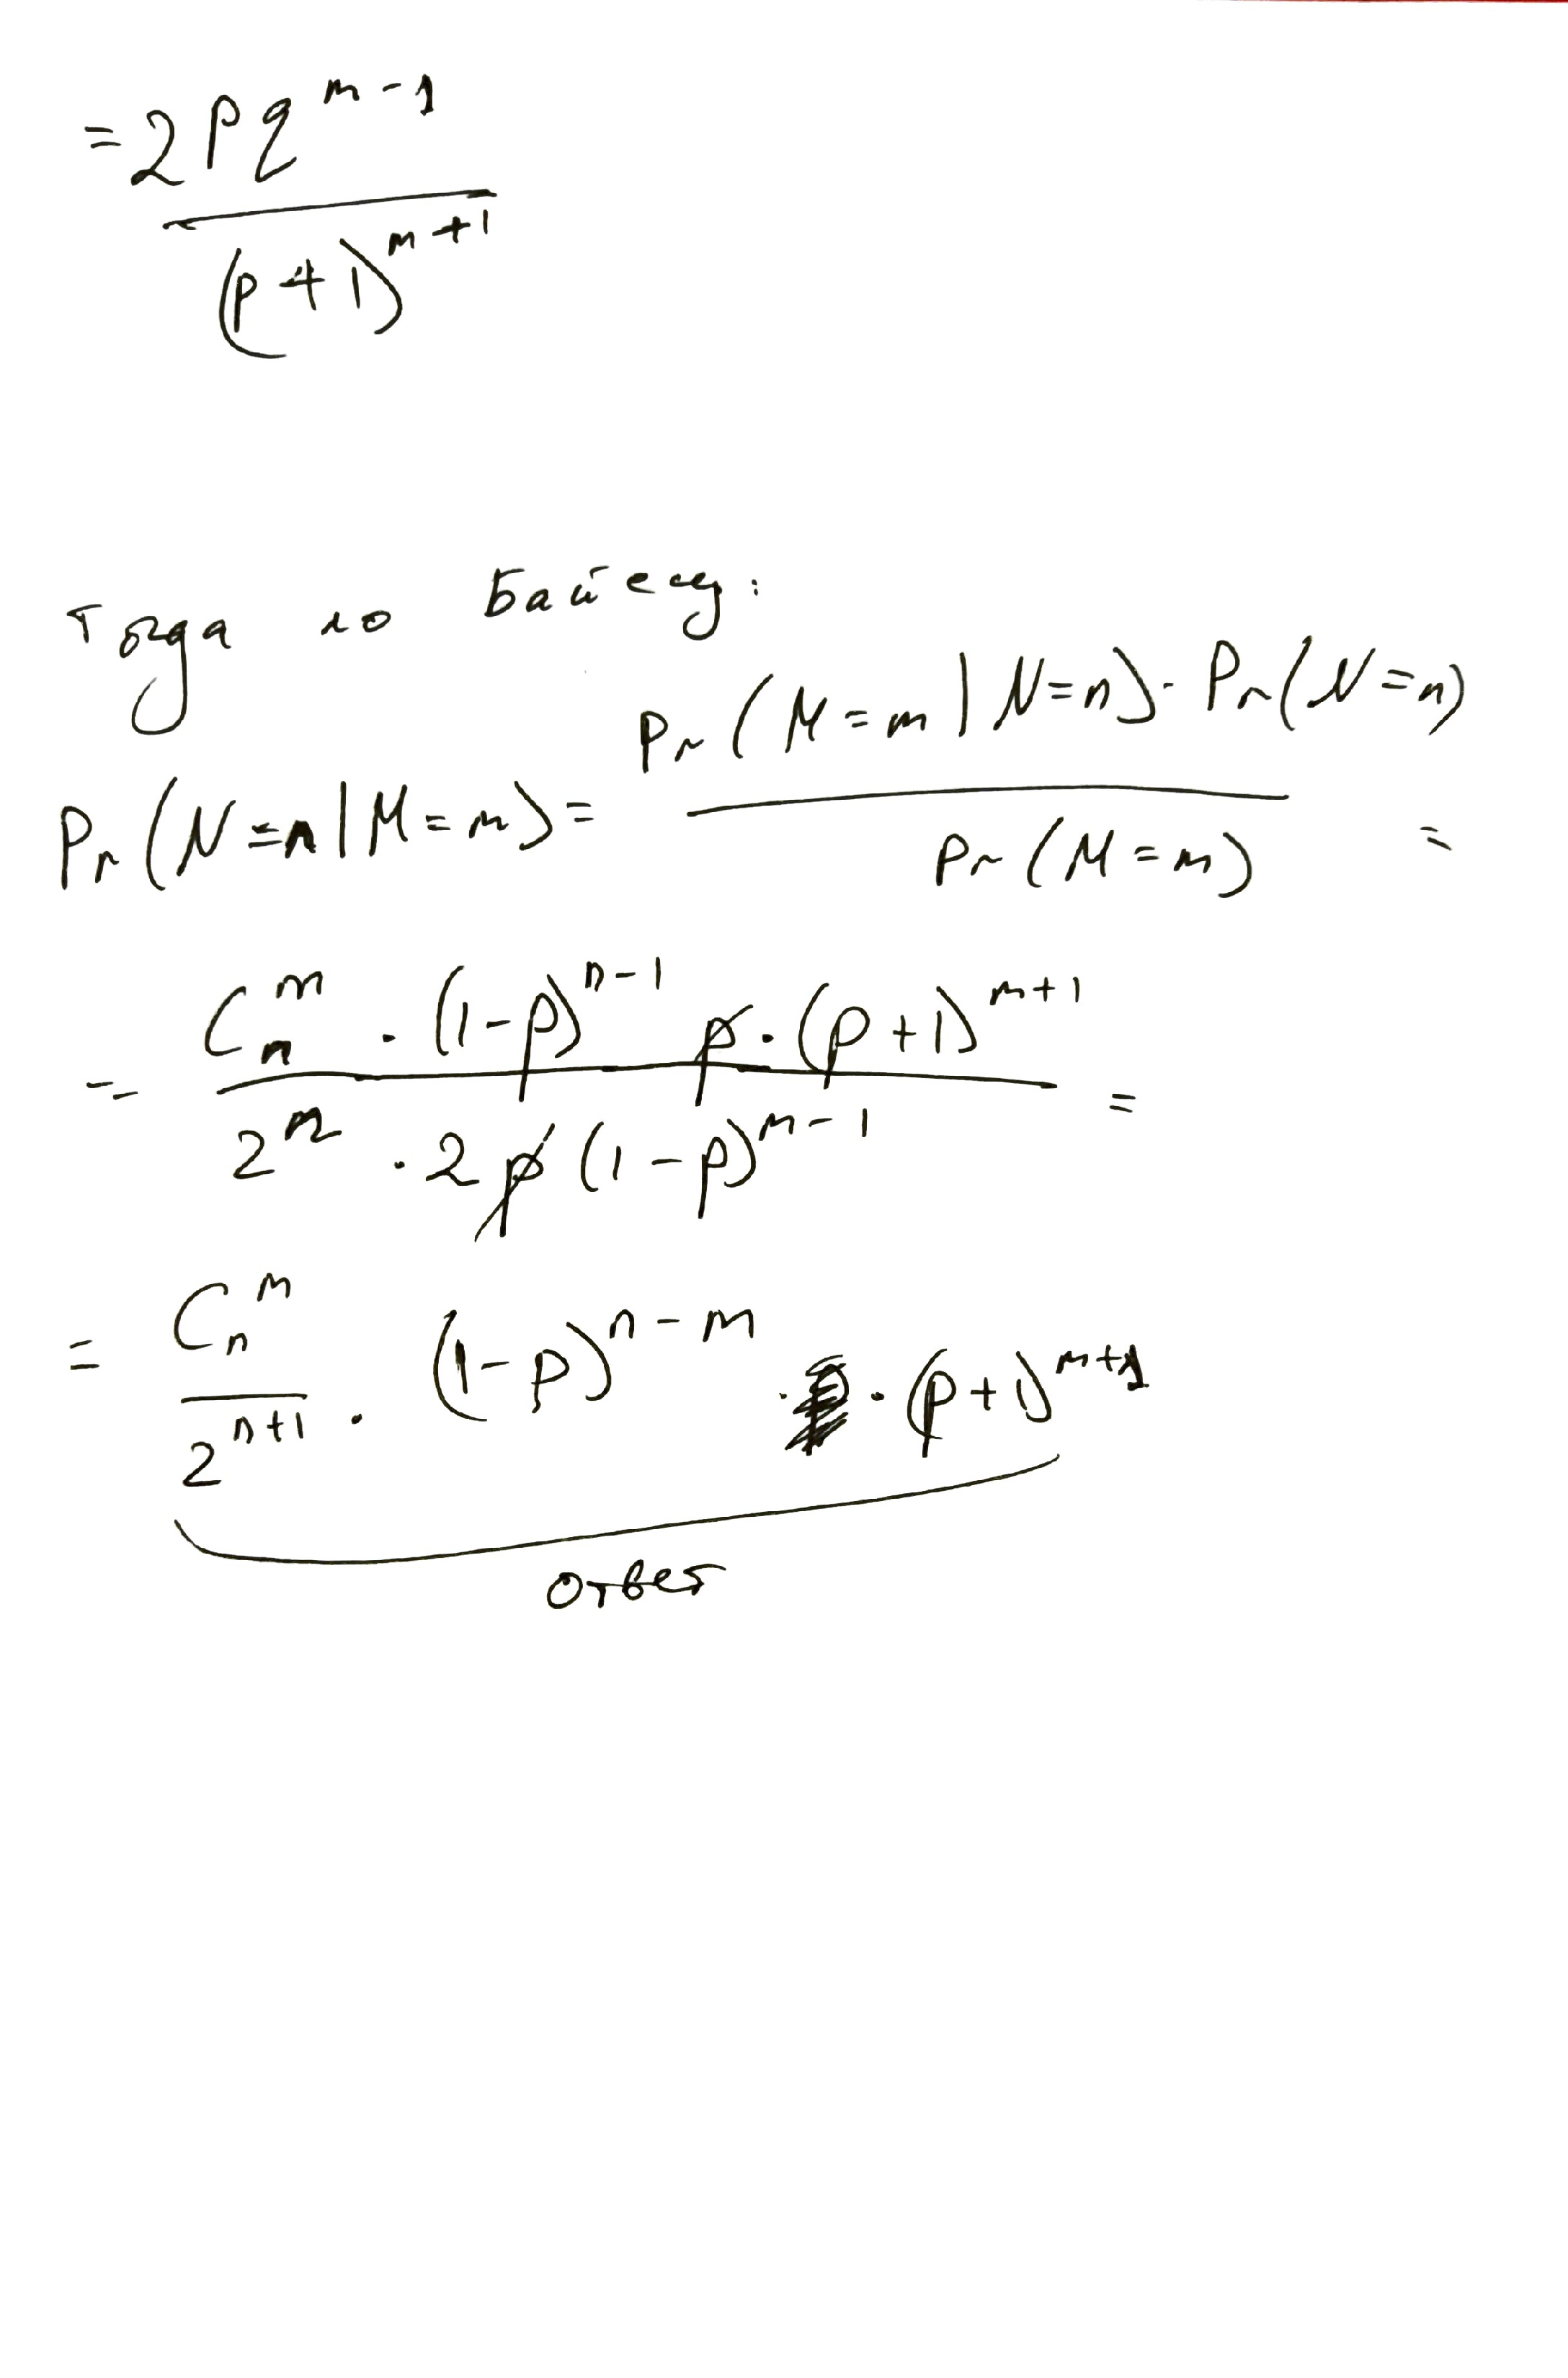 = 2pq^{m-1} / (p+1)^{m+1}
Тогда по Байесу:
Pr(N=n|M=m) = Pr(M=m|N=n)·Pr(N=n) / Pr(M=m) =
= C_n^m · (1-p)^{n-1} p · (p+1)^{m+1} / 2^n · 2p(1-p)^{m-1} =
= C_n^m / 2^{n+1} · (1-p)^{n-m} · (p+1)^{m+1}
Ответ